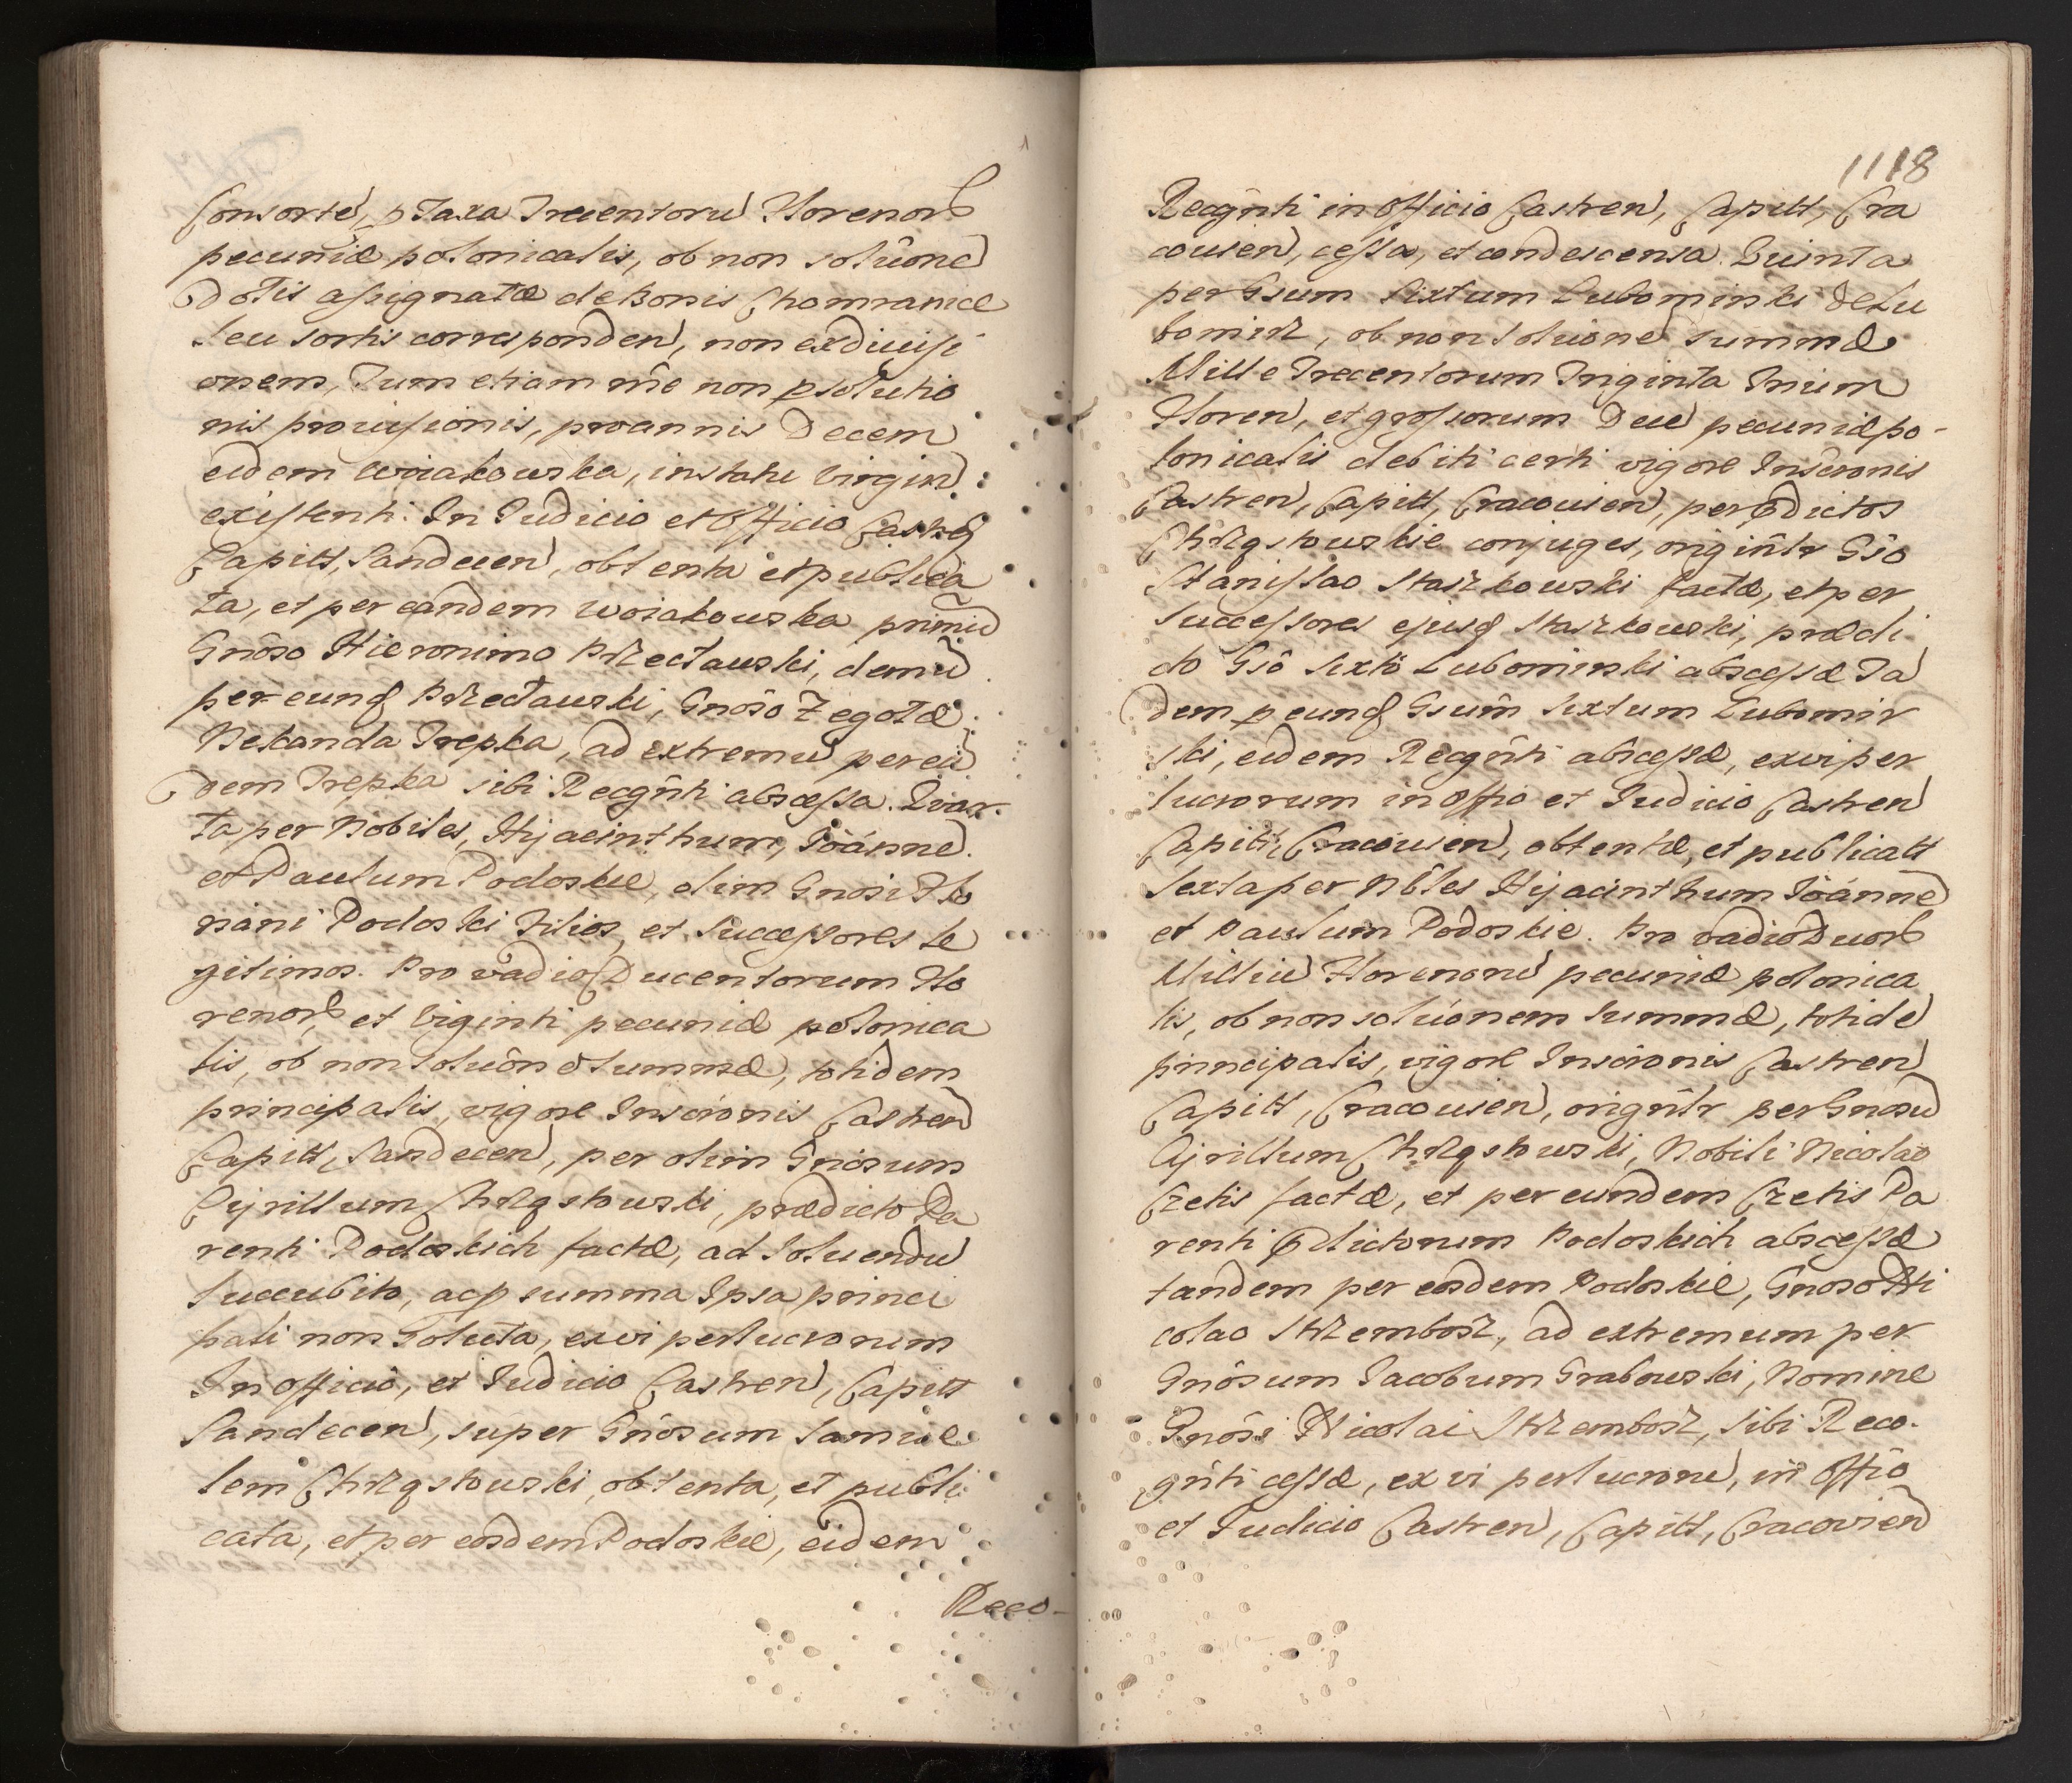 Consorte, p Taxa Trecentoru Florenor
pecuniæ polonicalis, ob non solûone
dotis assignatæ de Bonis Chomranice
seu sortis corresponden, non exdivisi
onem, Tum etiam rñe non psolutio
nis provisionis, pro annis Decem
eidem Woiakowska, in statu Virgin
existenti. In Judicio et Officio Castr
Capitt, Sandecen, obtenta et publica
ta, et per eandem Woiakouska primu
Gnôso Hieronimo Przectauski, demu
per eunq Przectauski, Gnôso Zegotæ
Nekanda Trepka, ad extremu per eu
dem Trepka sibi Recgñti abscessa. Quar
ta per Nobiles, Hyacinthum, Joánne
et Paulum Podoskie, olim Gnosi Flo
riani Podoski Filios, et Successores le
gitimos. Pro vadio Ducentorum Flo
renor, et Viginti pecuniæ polonica
lis, ob non soluône summæ, totidem
principalis, vigore Inscrônis Castren
Capitt, Sandecen, per olim Gnosum
Cyrillum Chrząstouski, prædicto Pa
renti Podoskich factæ, ad soluendu
succubito, acp summa Ipsa princi
pali non Soluta, ex vi perlucronum
In officio, et Judicio Castren, Capitt
Sandecen, super Gnôsum Samue
lem Chrząstouski, obtenta, et publi
cata, et per eosdem Podoskie, eidem
Reco-
1118
Recgñti in Officio Castren, Capitt, Cra
couien, cessa, et condescensa. Quinta
per Gsum Sixtum Lubominski de Lu
bomirz, ob non soluone summæ
Mille Trecentorum Triginta Trium
Floren, et grossorum Due pecuniæ po-
lonicalis debiti certi vigore Inscronis
Castren, Capitt, Cracouien, per pdictos
Chrząstouskie conjuges, originltr Gsô
Stanislao Starzkowski factæ, et per
Successores ejusq Starzkouski, prædi
cto Gsô Sixtô Lubominski abscessæ Ta
dem p eunq Gsum Sixtum Lubomir
ski, eidem Recgñti abscessæ, ex vi per
lucrorum in offio et Judicio Castren
Capitt, Cracouien, obtentæ, et publicatt
Sexta per Nôles Hyacinthum Joánne
et Paulum Podoskie. Pro vadio Duor
Milliu Florenoru pecuniæ polonica
lis, ob non solúonem summæ, totide
principalis, vigore Inscronis Castren
Capitt, Cracouien, origñltr per Gnosu
Cyrillum Chrząstouski, Nobili Nicolao
Czetis factæ, et per eundem Czetis Pa
renti pdictorum Podoskich abscessæ
tandem per eosdem Podoskie, Gnoso Ni
colao Strzembosz, ad extremum per
Gnôsum Jacobum Grabouski, Nomine
Gnôsi Nicolai Strzembosz, sibi Reco-
gñti cessæ, ex vi perlucronu, in Offiô
et Judicio Castren, Capitt, Cracovien